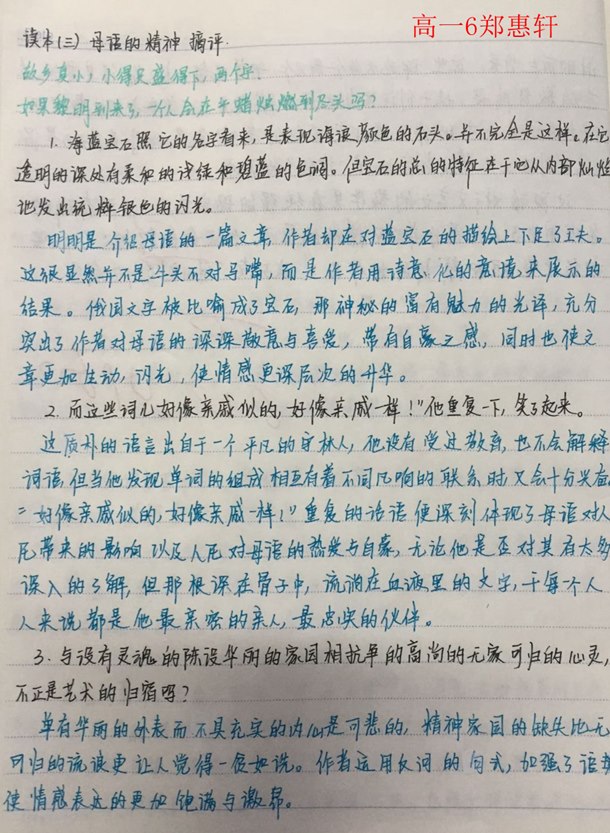 高一6郑惠轩
读本(三) 母语的精神 摘评.
故乡真小,小得只盛得下,两个字.
如果黎明到来了,一个人会在乎蜡烛燃到尽头吗?
1. 海蓝宝石照它的名字看来,是表现海浪颜色的石头。并不完全是这样。在它
透明的深处有柔和的浅绿和碧蓝的色调。但宝石的总的特征在于它从内部灿烂
地发出纯粹银色的闪光。
明明是介绍母语的一篇文章,作者却在对蓝宝石的描绘上下足了工夫。
这很显然并不是牛头不对马嘴,而是作者用诗意化的意境来展示的
结果。俄国文字被比喻成了宝石,那神秘的富有魅力的光译,充分
突出了作者对母语的深深敬意与喜爱,带有自豪之感,同时也使文
章更加生动,闪光,使情感更深层次的升华。
2. 而这些词儿好像亲戚似的,好像亲戚一样!"他重复一下,笑了起来。
这质朴的语言出自于一个平凡的守林人,他没有受过教育,也不会解释
词语,但当他发现单词的组成相互有着不同凡响的联系时又会十分兴奋
"好像亲戚似的,好像亲戚一样!"重复的话语便深刻体现了母语对人
民带来的影响以及人民对母语的热爱与自豪,无论他是否对其有太多
深入的了解,但那根深在骨子中,流淌在血液里的文字,于每个人
人来说都是他最亲密的亲人,最忠实的伙伴。
3. 与没有灵魂的陈设华丽的家园相抗争的高尚的无家可归的心灵,
不正是艺术的归宿吗?
单有华丽的外表而不具充实的内心是可悲的,精神家园的缺失比无
可归的流浪更让人觉得一贫如洗。作者运用反问的句式,加强了语势
使情感表达的更加饱满与激昂。